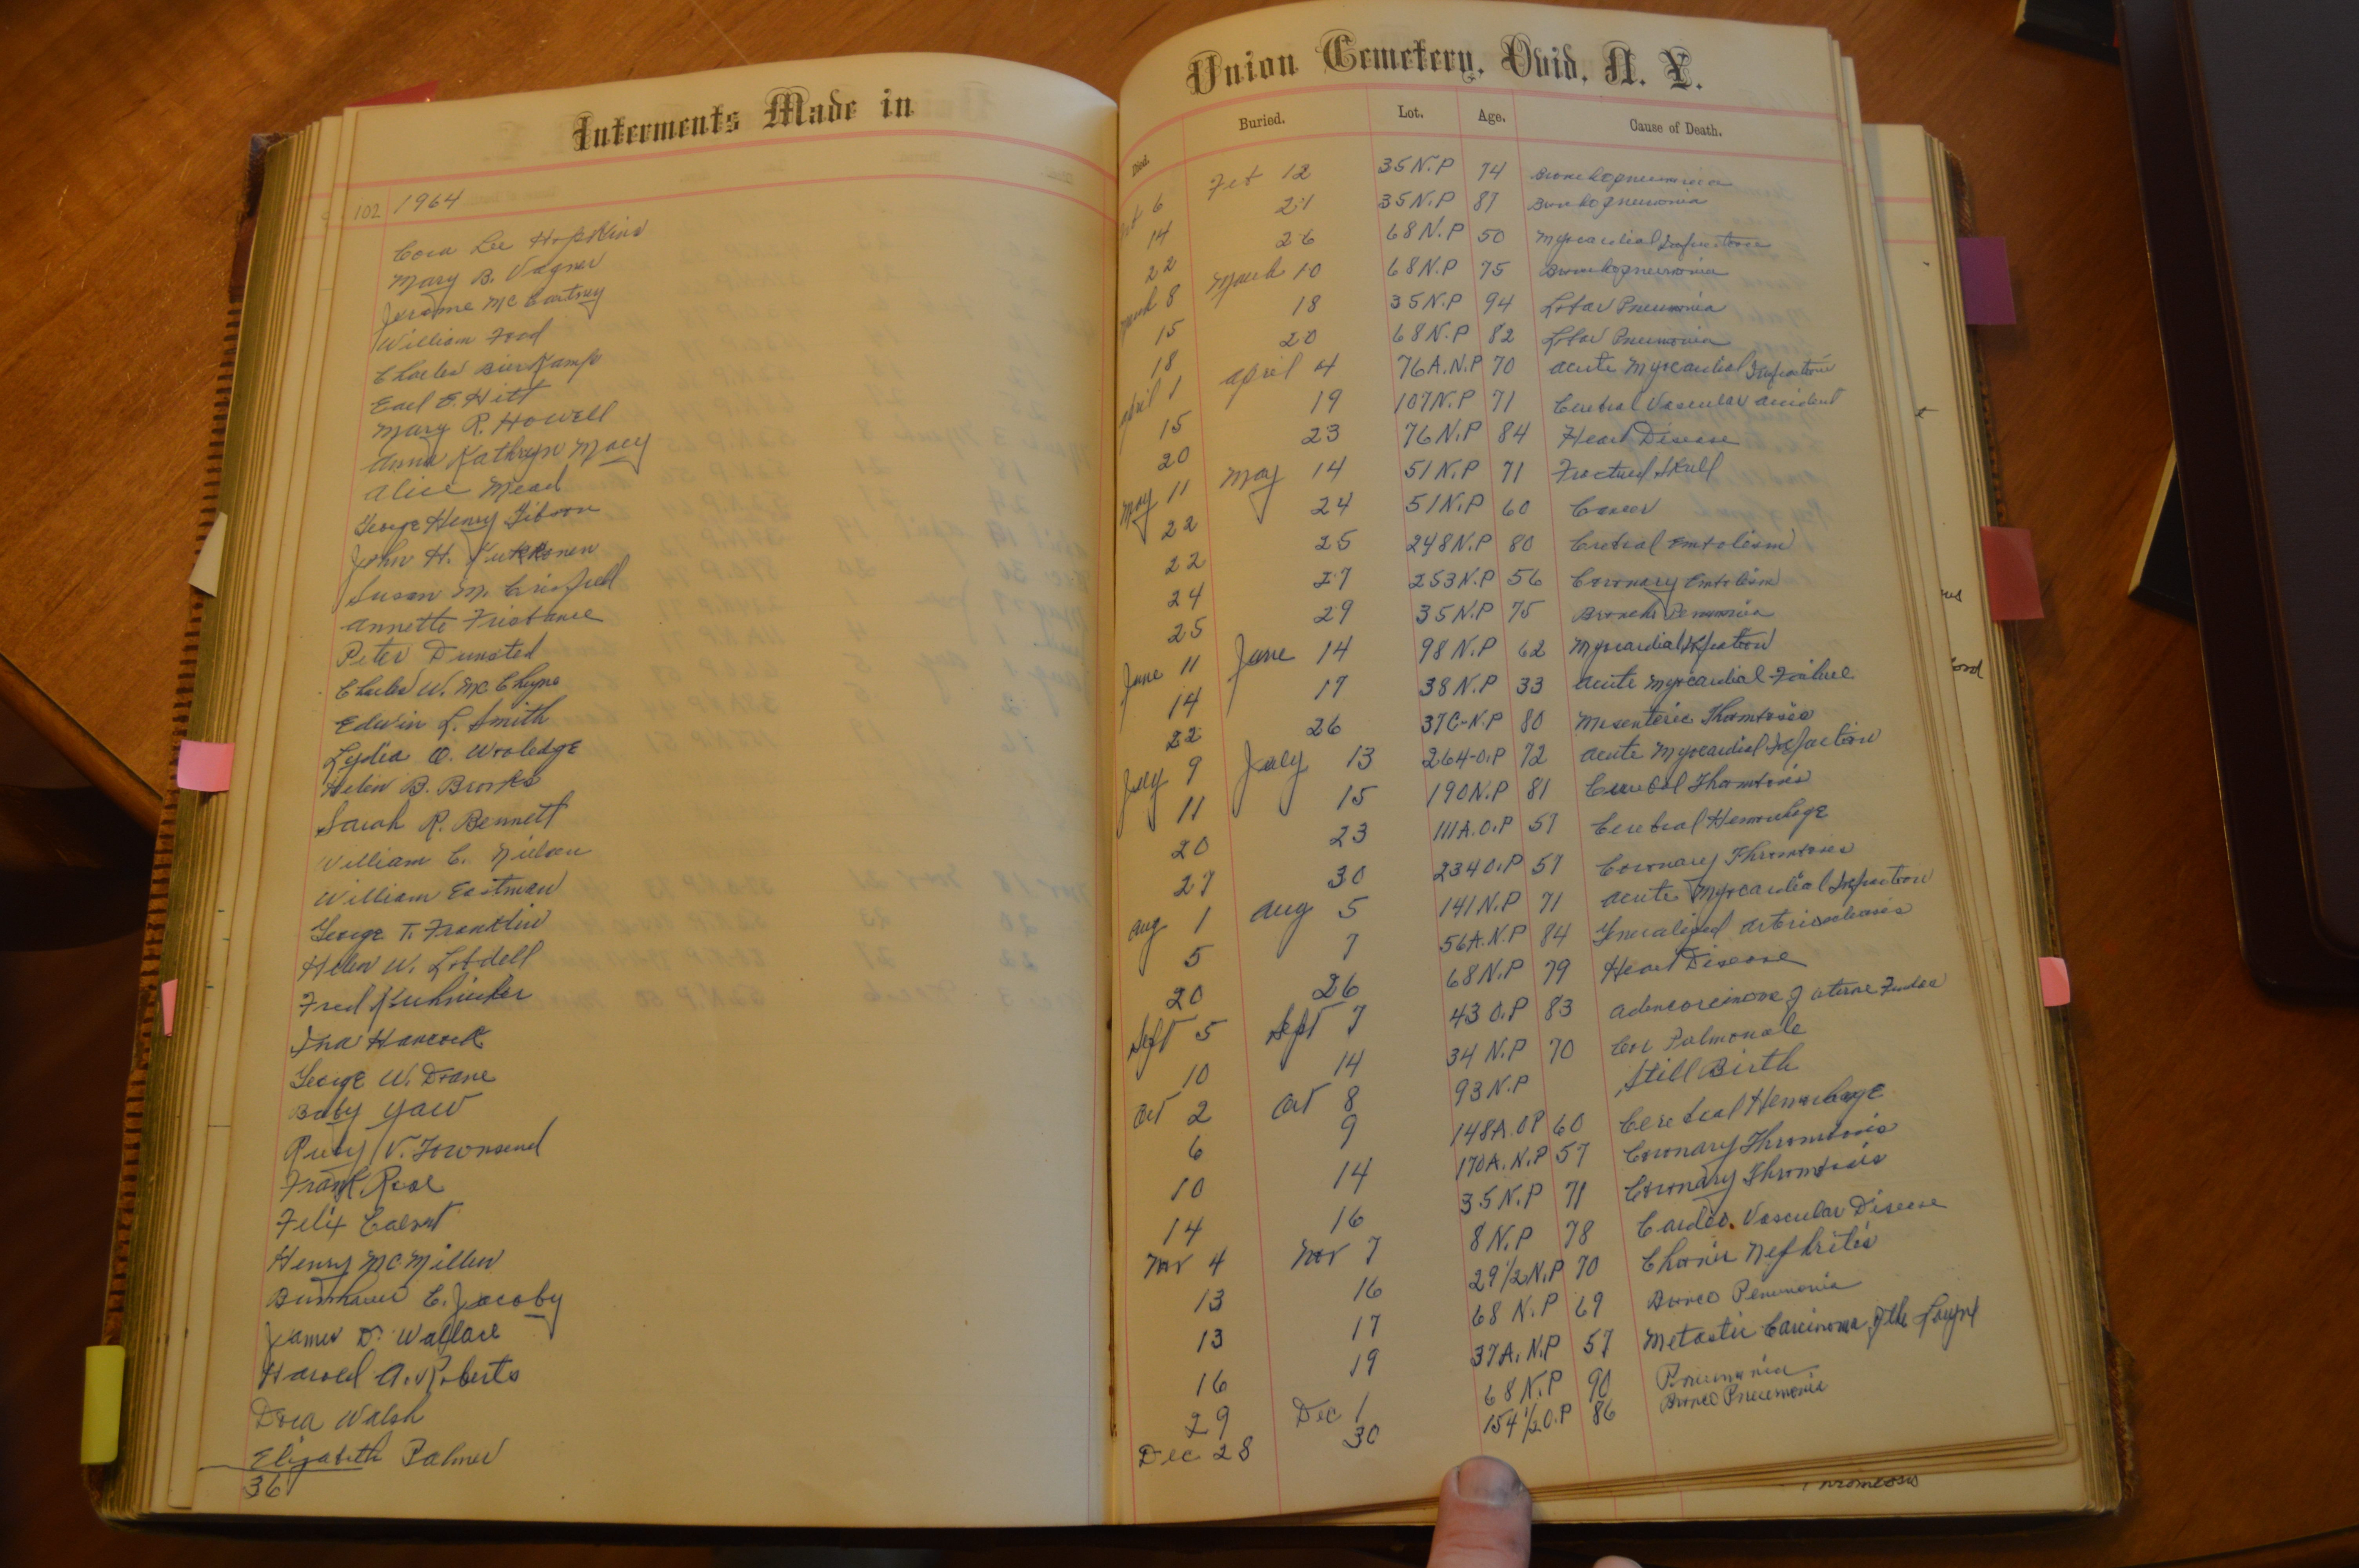 Interments Made in
102 1964
Cora Lee Hopkins
Mary B. Vagner
Jerome McCartney
William Food
Charles Bierkamp
Earl E. Hitt
Mary R. Howell
Anna Kathryn Macy
Alice Mead
George Henry Gibson
John H.
Susan M.
Annette Fristance
Peter Dunsted
Charles W.
Edwin L. Smith
Lydia O. Wooledge
Helen B. Brooks
Sarah R. Bennett
William C. Nielsen
William Eastman
George T. Franklin
Helen W. Lobdell
Fred
Ina Hancock
George W. Drane
Baby Yaw
Ruby V. Townsend
Frank Rose
Felix
Henry McMillen
C. Jacoby
James D. Wallace
Harold A. Roberts
Dora Walsh
Elizabeth Palmer
36
Union Cemetery, Ovid, N. Y.
Died. Buried. Lot. Age. Cause of Death.
6 Feb 12 35 N.P 74 Bronchopneumonia
14 21 35 N.P 87 Bronchopneumonia
22 26 68 N.P 50 Myocardial Infarction
March 8 March 10 68 N.P 75 Bronchopneumonia
15 18 35 N.P 94 Lobar Pneumonia
18 20 68 N.P 82 Lobar Pneumonia
April 1 April 4 76A.N.P 70 Acute Myocardial Infarction
15 19 107 N.P 71 Cerebral Vascular Accident
20 23 76 N.P 84 Heart Disease
May 11 May 14 51 N.P 71 Fractured Skull
22 24 51 N.P 60 Cancer
22 25 248 N.P 80 Cerebral Embolism
24 27 253 N.P 56 Coronary Embolism
25 29 35 N.P 75 Broncho
June 11 June 14 98 N.P 62 Myocardial
14 17 38 N.P 33 Acute Myocardial Failure
22 26 37C-N.P 80 Mesenteric Thombosis
July 9 July 13 264-O.P 72 Acute Myocardial Infaction
11 15 190 N.P 81 Thombosis
20 23 111A.O.P 57 Cerebral
27 30 234 O.P 57 Coronary Thrombosis
Aug 1 Aug 5 141 N.P 71 Acute Myocardial Infaction
5 7 56A.N.P 84 Generalized
20 26 68 N.P 79 Heart Disease
Sept 5 Sept 7 43 O.P 83 of uterine
10 14 34 N.P 70 Cor Pulmonale
Oct 2 Oct 8 93 N.P Still Birth
6 9 148A.OP 60 Cerebral
10 14 170A.N.P 57 Coronary Thrombosis
14 16 35 N.P 71 Coronary Thrombosis
Nov 4 Nov 7 8 N.P 78 Cardio. Vascular Disease
13 16 29 1/2 N.P 70 Nephritis
13 17 68 N.P 69 Bronco Penumonia
16 19 37A.N.P 57 Metastic Carcinoma of the
29 Dec 1 68 N.P 90 Pneumonia
Dec 28 30 154 1/2 O.P 86 Bronco Pneumonia